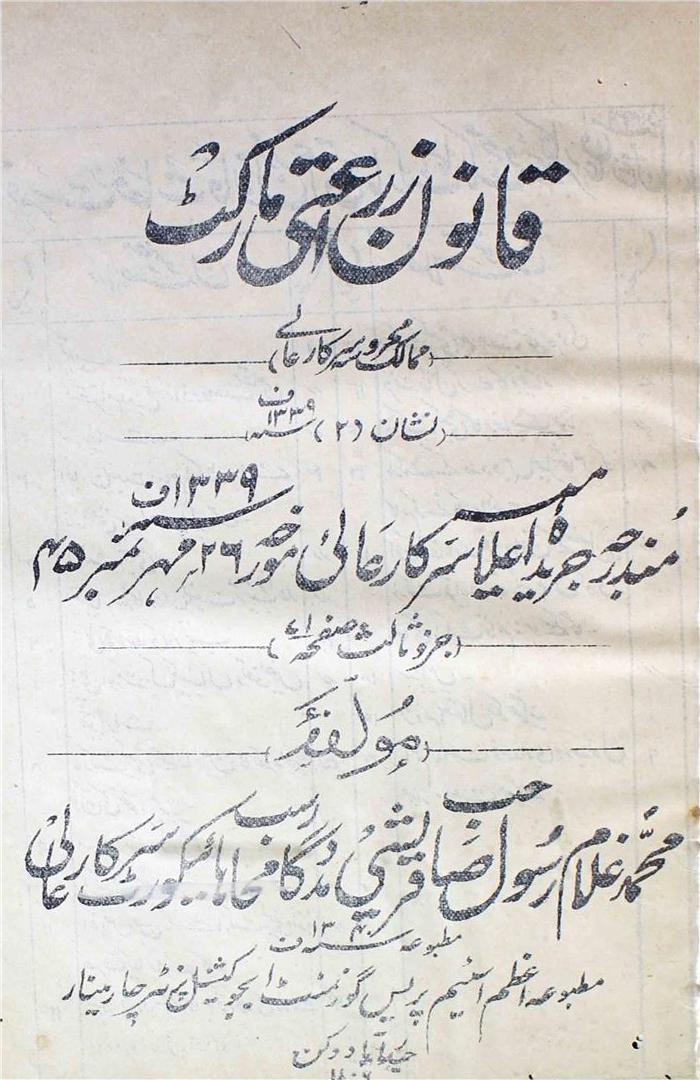 قانون زراعتی مارکٹ
(ممالک محروسہ سرکار عالی)
نشان (۲) سنہ ۱۳۳۹ف
مندرجہ جریدہ اعلامیہ سرکار عالی مورخہ ۲۶ مہر سنہ ۱۳۳۹ف نمبر ۴۵
(جزو ثالث صفحہ ۴۱)
(مولفہ)
محمد غلام رسول صاحب قریشی مددگار محاسب ہائیکورٹ سرکار عالی
مطبوعہ سنہ ۱۳۴۰ف
مطبوعہ اعظم اسٹیم پریس گورنمنٹ ایجوکیشنل پرنٹر چارمینار
حیدرآباد دکن